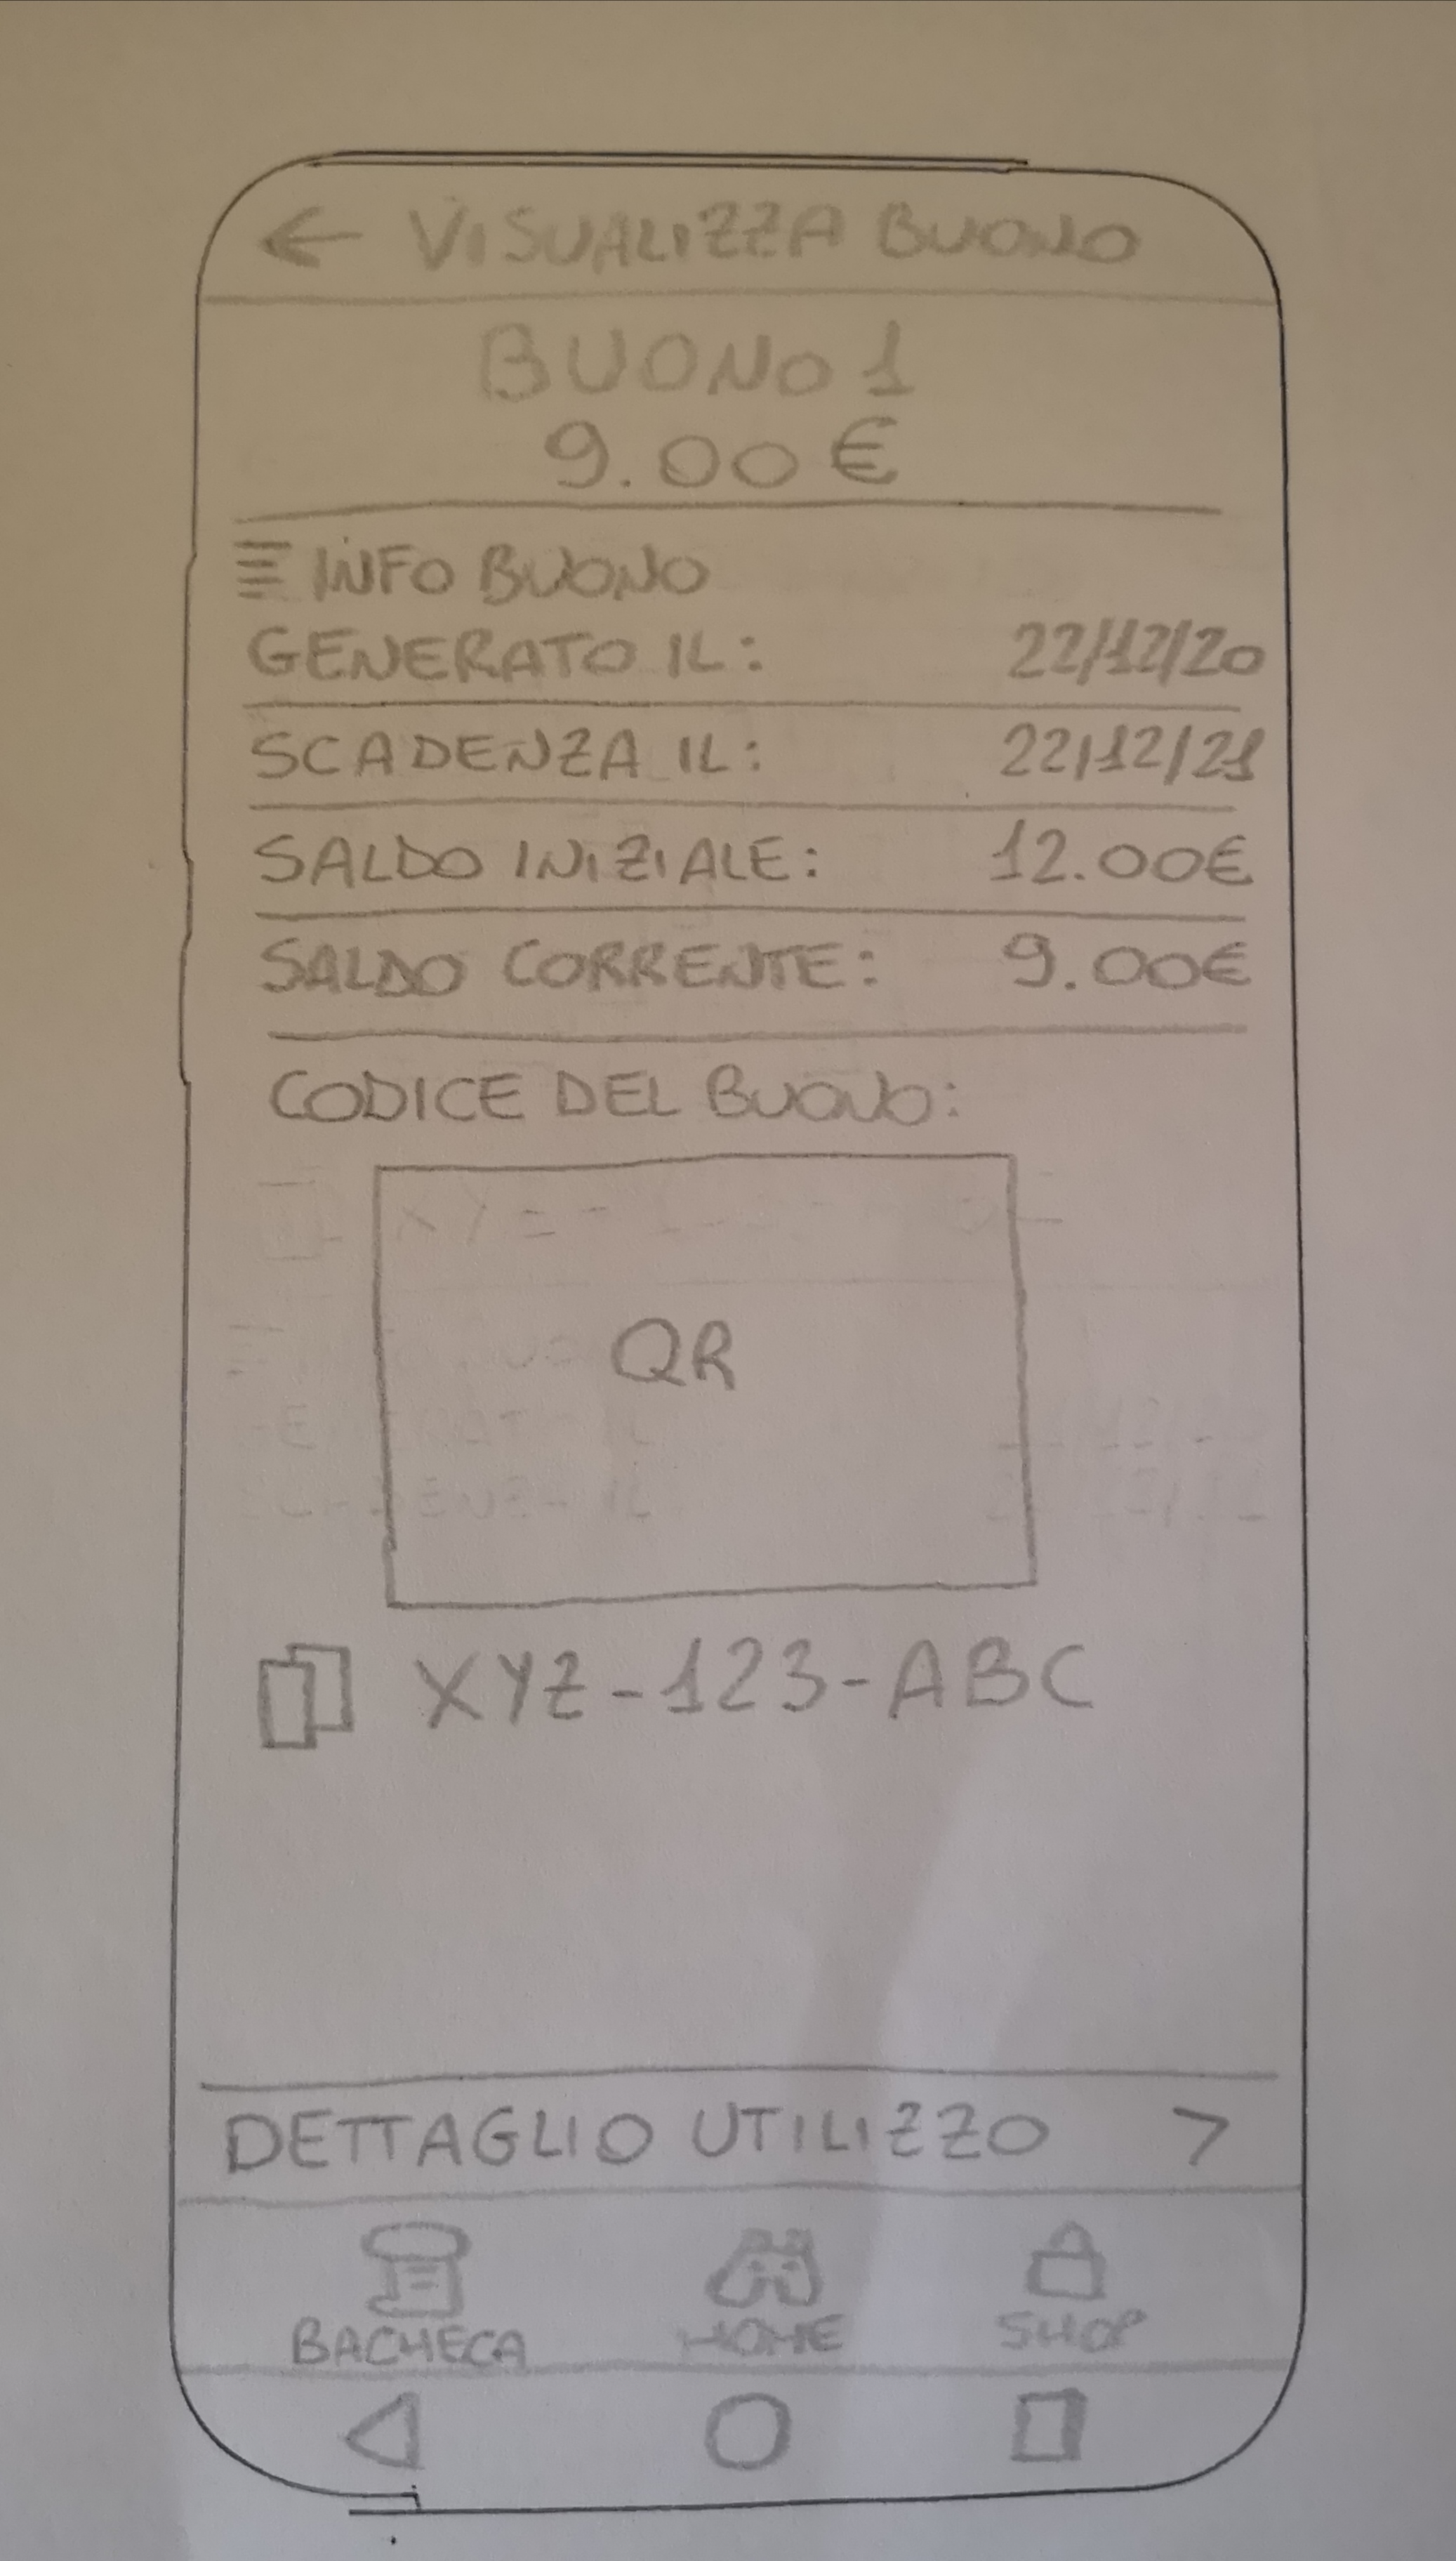 ← VISUALIZZA BUONO
BUONO 1
9.00 €
INFO BUONO
GENERATO IL: 22/12/20
SCADENZA IL: 22/12/21
SALDO INIZIALE: 12.00€
SALDO CORRENTE: 9.00€
CODICE DEL BUONO:
QR
XYZ-123-ABC
DETTAGLIO UTILIZZO >
BACHECA HOME SHOP